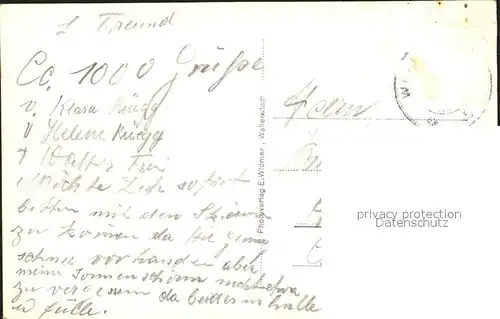 1 Freund
Ca. 1000 Grüsse
v. Klara Rüegg
v Helene Rüegg
+ Walter Frei
Möchte Dich sofort
bitten mit den Skiern
zu kommen da hier genug
schnee vorhanden aber
meine Sonnenschirm nicht etwa
zu vergessen da beides in hülle
u fülle.
Photoverlag E. Widmer, Wallenstadt
Herrn
privacy protection
MyOldPostcard.com